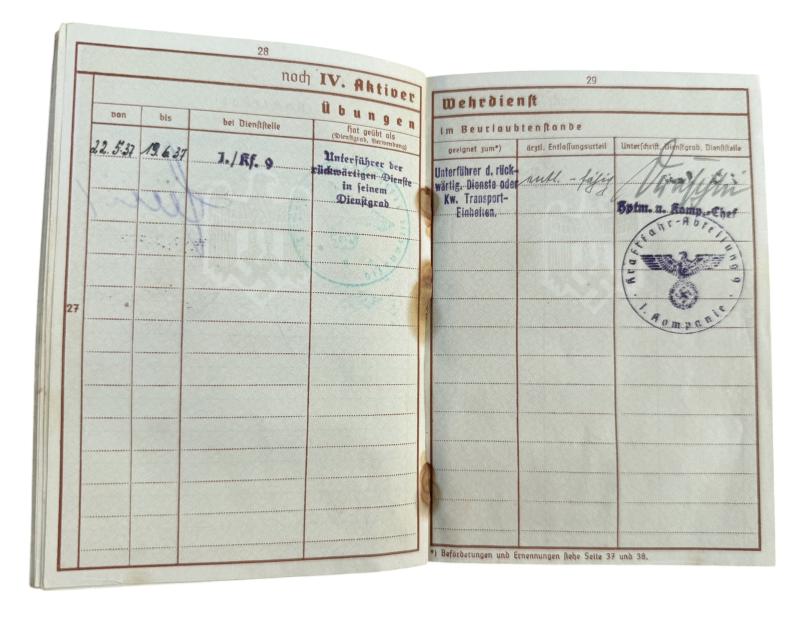 28
noch IV. Aktiver
Übungen
von
bis
bei Dienststelle
hat geübt als
(Dienstgrad, Verwendung)
22.5.37
19.6.37
1./Kf. 9
Unterführer der
rückwärtigen Dienste
in seinem
Dienstgrad
27
29
Wehrdienst
im Beurlaubtenstande
geeignet zum*)
ärztl. Entlassungsurteil
Unterschrift, Dienstgrad, Dienststelle
Unterführer d. rück-
wärtig. Dienste oder
Kw. Transport-
Einheiten.
entl. - fähig
Hptm. u. Komp.-Chef
Kraftfahr-Abteilung 9
1. Kompanie
*) Beförderungen und Ernennungen siehe Seite 37 und 38.